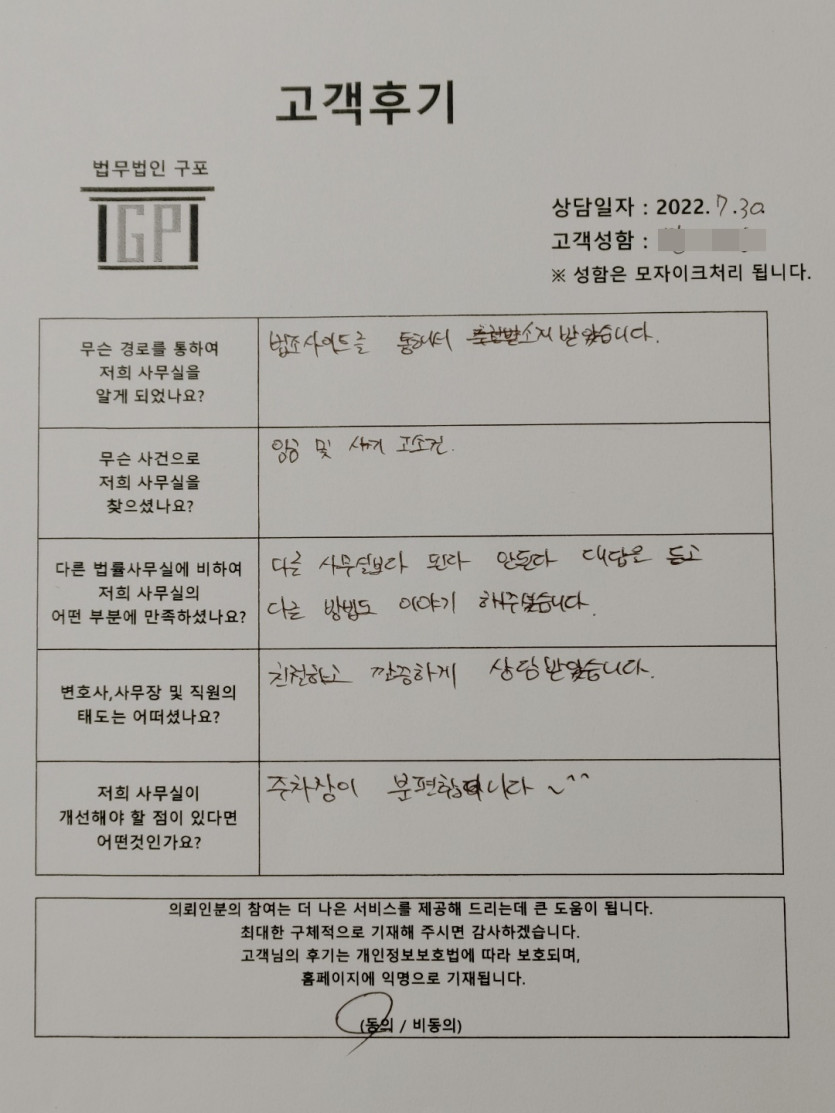 고객후기
법무법인 구포
GP
상담일자 : 2022.7.30
고객성함 :
※ 성함은 모자이크처리 됩니다.
무슨 경로를 통하여
저희 사무실을
알게 되었나요?
법조사이트를 통해서 소개 받았습니다.
무슨 사건으로
저희 사무실을
찾으셨나요?
및 사기 고소건.
다른 법률사무실에 비하여
저희 사무실의
어떤 부분에 만족하셨나요?
다른 사무실보다 된다 안된다 대답은 듣고
다른 방법도 이야기 해주셨습니다.
변호사,사무장 및 직원의
태도는 어떠셨나요?
친절하고 깔끔하게 상담받았습니다.
저희 사무실이
개선해야 할 점이 있다면
어떤것인가요?
주차장이 불편합니다~^^
의뢰인분의 참여는 더 나은 서비스를 제공해 드리는데 큰 도움이 됩니다.
최대한 구체적으로 기재해 주시면 감사하겠습니다.
고객님의 후기는 개인정보보호법에 따라 보호되며,
홈페이지에 익명으로 기재됩니다.
(동의 / 비동의)